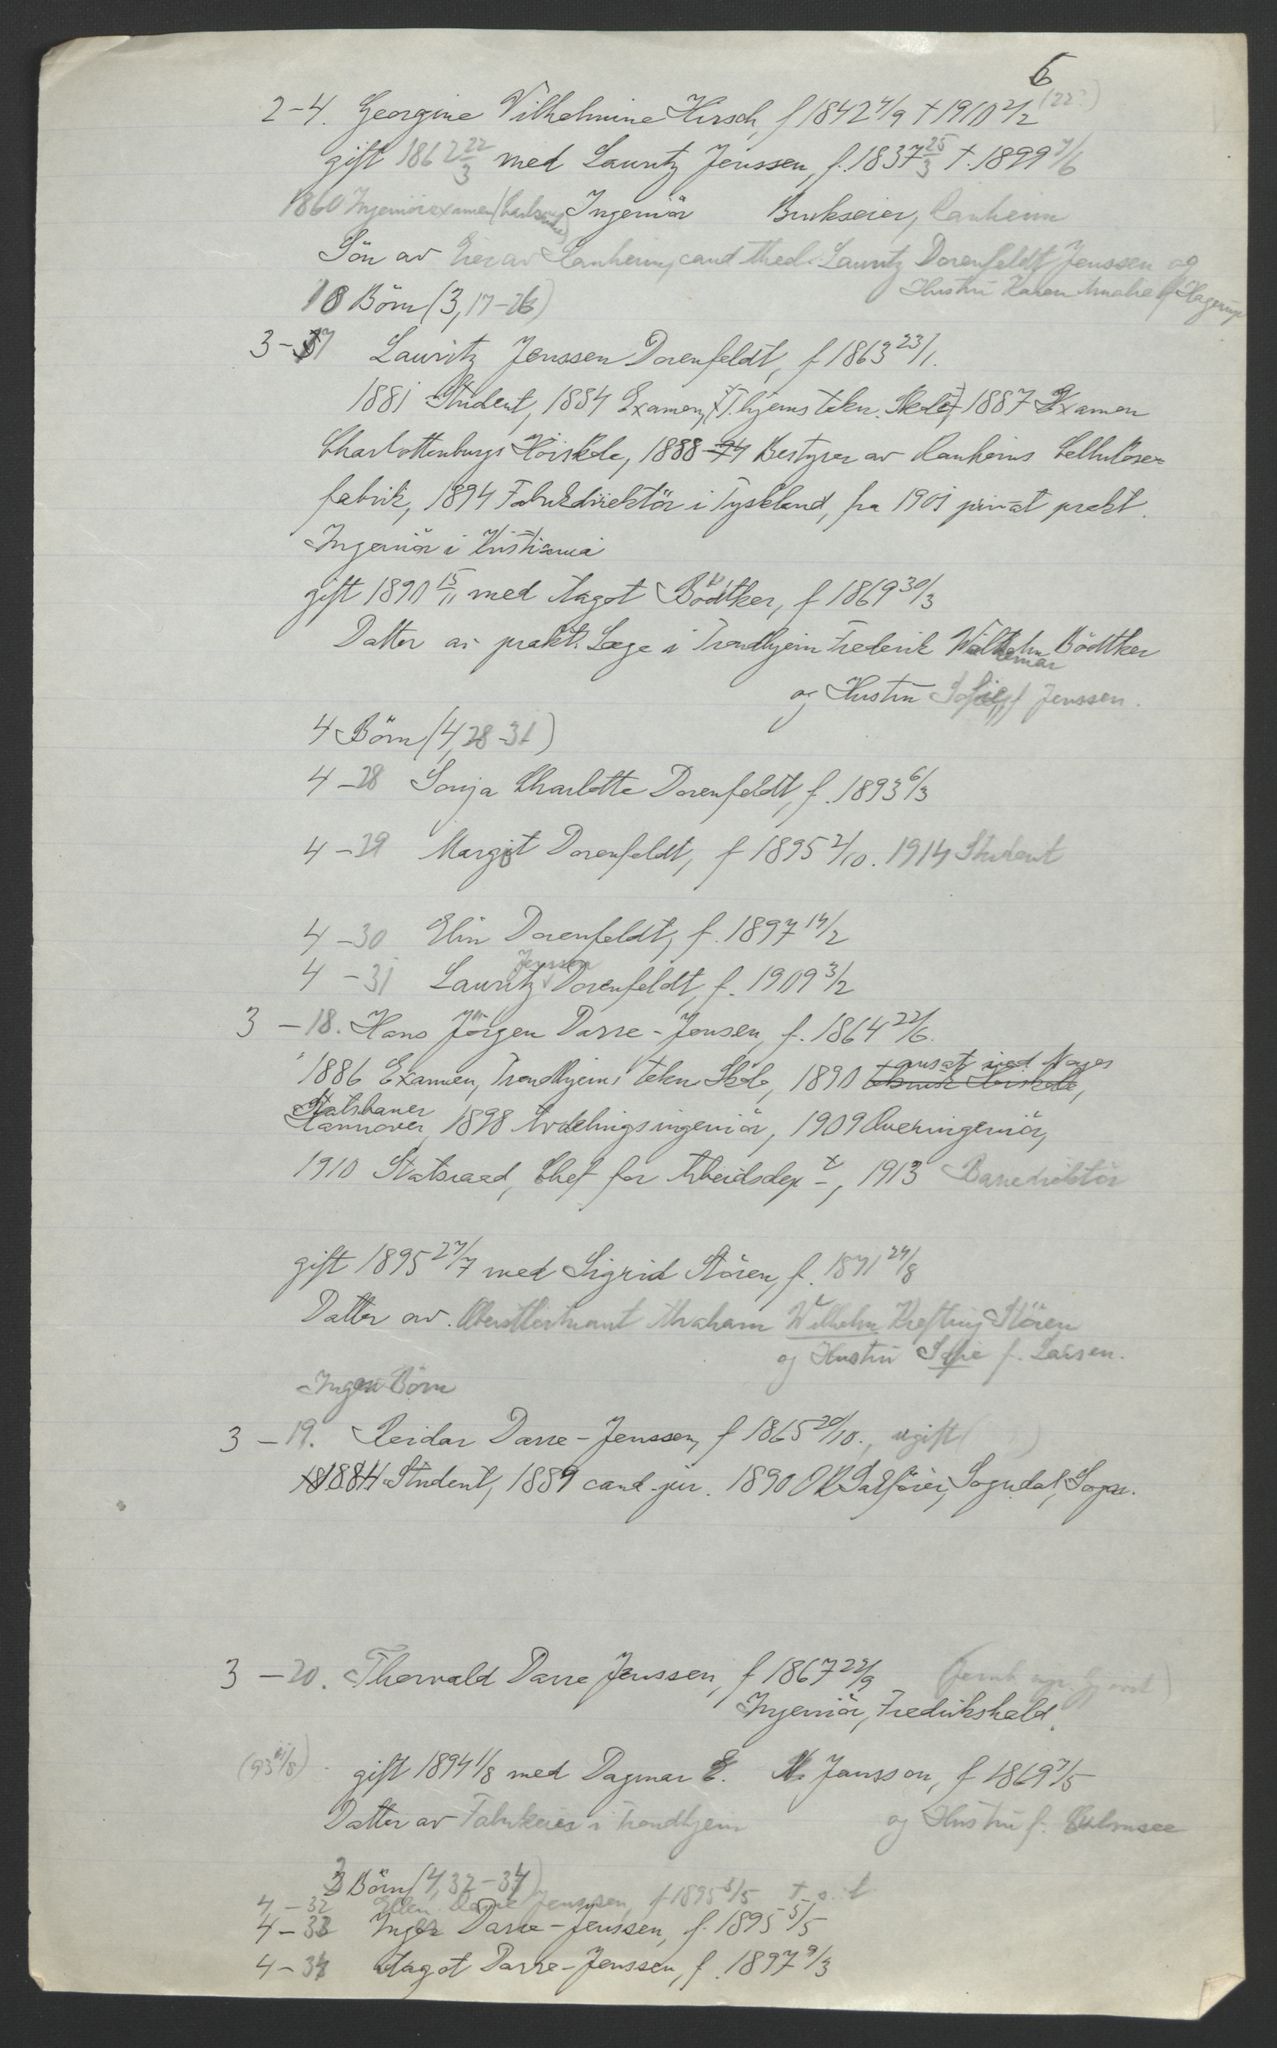 6
2-4. Georgine Vilhelmine Hirsch, f 1842 4/9 † 1910 2/2 (22?)
gift 1862 22/3 med Lauritz Jenssen, f. 1837 25/3 †. 1899 7/6
1860 Ingeniörexamen (Carlsruhe) Ingeniör Brukseier, Ranheim
Sön av Eier av Ranheim, cand theol. Lauritz Dorenfeldt Jenssen og
Hustru Karen Amalie f Hagerup
10 Börn (3, 17-26)
3-17 Lauritz Jenssen Dorenfeldt, f 1863 23/1.
1881 Student, 1884 Examen, T.hjems tekn. Skole, 1887 Examen
Charlottenburgs Höiskole, 1888-94 Bestyrer av Ranheims Cellulose-
fabrik, 1894 Fabrikdirektör i Tyskland, fra 1901 privat prakt.
Ingeniör i Kristiania
gift 1890 15/11 med Aagot Bödtker, f 1869 30/3
Datter av prakt. Læge i Trondhjem Frederik Waldemar Bödtker
og Hustru Sofie f Jenssen.
4 Börn (4, 28-31)
4-28 Sonja Charlotte Dorenfeldt, f. 1893 6/3
4-29 Margit Dorenfeldt, f 1895 2/10. 1914 Student
4-30 Elin Dorenfeldt, f. 1897 14/2
4-31 Lauritz Jenssen Dorenfeldt, f. 1909 3/2
3-18. Hans Jörgen Darre-Jensen, f. 1864 22/6.
1886 Examen, Trondhjems tekn Skole, 1890 ansat ved Norges
Statsbaner Hannover, 1898 Avdelingsingeniör, 1909 Overingeniör,
1910 Statsraad, Chef for Arbeidsdept, 1913 Banedirektör
gift 1895 27/7 med Sigrid Stören, f. 1871 24/8
Datter av. Oberstlöitnant Abraham Wilhelm Krefting Stören
og Hustru Sofie f. Larsen.
Ingen Börn
3-19. Reidar Darre-Jenssen, f 1865 20/10., ugift
1884 Student, 1889 cand. jur. 1890 O R Sakförer, Sogndal, Sogn.
3-20. Thorvald Darre Jenssen, f 1867 22/9
Ingeniör, Fredrikshald.
gift 1894 1/8 med Dagmar E. M. Jansson, f 1869 7/5
Datter av Fabrikeier i Trondhjem og Hustru f.
3 Börn (4, 32-34)
4-32 Ellen Darre Jenssen, f 1895 5/5 †
4-33 Inger Darre-Jenssen, f. 1895 5/5
4-34 Aagot Darre-Jenssen, f. 1897 9/3